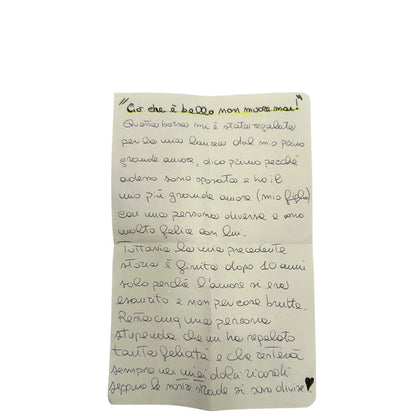 "Ciò che è bello non muore mai!"
Questa borsa mi è stata regalata
per la mia laurea dal mio primo
grande amore, dico primo perché
adesso sono sposata e ho il
mio più grande amore (mia figlia)
con una persona diversa e sono
molto felice con lui.
Tuttavia la mia precedente
storia è finita dopo 10 anni
solo perché l'amore si era
esaurito e non per cose brutte.
Resta cmq una persona
stupenda che mi ha regalato
tanta felicità e che resterà
sempre nei miei dolci ricordi
seppure le nostre strade si sono divise